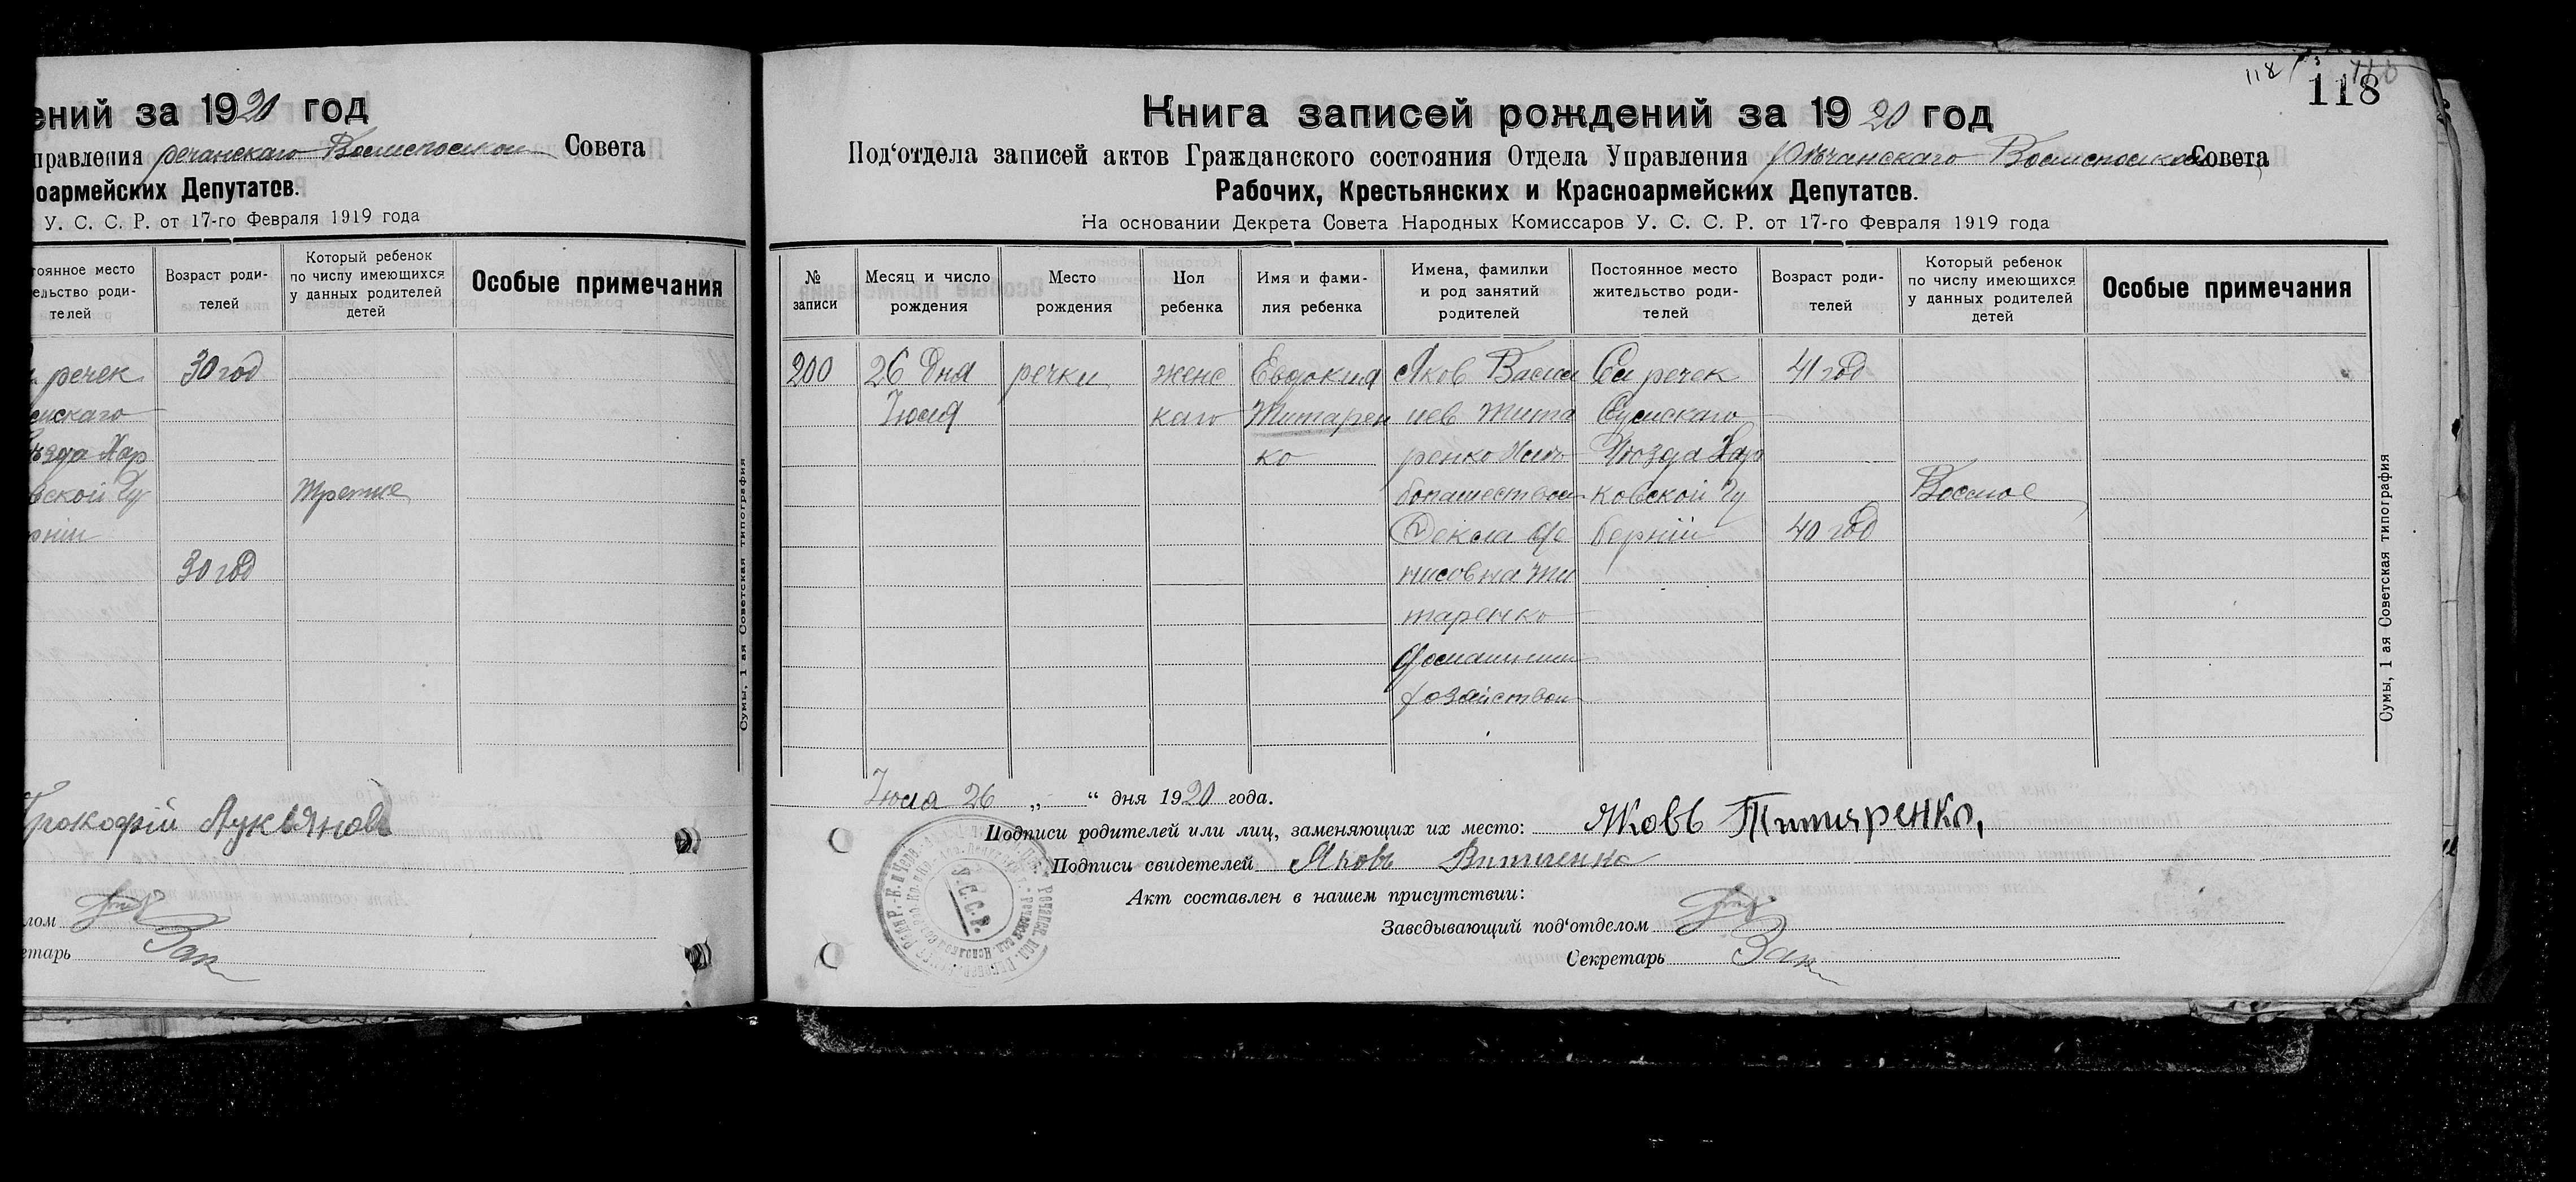 ений за 1920 год
правления речанскаго Волисполком Совета
ноармейских Депутатов.
У. С. С. Р. от 17-го Февраля 1919 года
тоянное место
ельство роди-
телей
Возраст роди-
телей
Который ребенок
по числу имеющихся
у данных родителей
детей
Особые примечания
речек
30 год
умскаго
езда Хар
вской Гу
третие
рніи
30 год
Прокофій Лукьянов
лом
етарь Зак
Сумы, 1 ая Советская типография
118
118
Книга записей рождений за 1920 год
Под‘отдела записей актов Гражданского состояния Отдела Управления Речанскаго Волисполком Совета
Рабочих, Крестьянских и Красноармейских Депутатов.
На основании Декрета Совета Народных Комиссаров У. С. С. Р. от 17-го Февраля 1919 года
№
записи
Месяц и число
рождения
Место
рождения
Пол
ребенка
Имя и фами-
лия ребенка
Имена, фамилии
и род занятий
родителей
Постоянное место
жительство роди-
телей
Возраст роди-
телей
Который ребенок
по числу имеющихся
у данных родителей
детей
Особые примечания
200 26 дня речки женс Евдокия Яков Васи Сл речек 41 год
Июля каго Титарен лев Тита Сумскаго
ко ренко Хле Уюзда Хар
бопашеством ковской Гу Восмое
Фекла Де берніи 40 год
нисовна Ти
таренко
Домашним
хозяйством
Июля 26 „ “ дня 1920 года.
Подписи родителей или лиц, заменяющих их место: Яковъ Титаренко,
Подписи свидетелей Яковъ Витченко
Акт составлен в нашем присутствии:
Заведывающий под‘отделом
Секретарь Зак
У.С.С.Р.
Сумы, 1 ая Советская типография